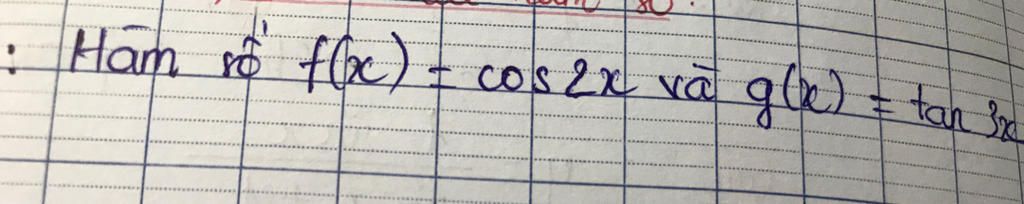 : Hàm số f(x) = cos 2x và g(x) = tan 3x